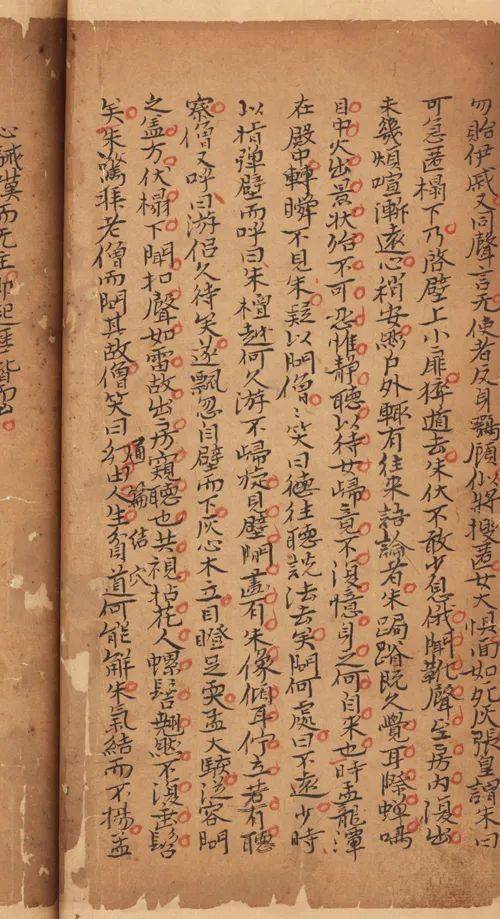 勿貽伊戚又同聲言无使者反身鶚顧似將搜匿女大惧面如死灰張皇謂朱曰
可急匿榻下乃啓壁上小扉猝遁去朱伏不敢少息俄聞靴聲至房内復出
未幾煩喧漸遠心稍安然戶外輒有往來語論者朱跼蹐既久覺耳際蟬鳴
目中火出景状殆不可忍惟静聽以待女歸竟不復憶身之何自来也時孟龍潭
在殿中轉瞬不見朱疑以问僧〻笑曰往聽説法去矣问何處曰不遠少時
以指弹壁而呼曰朱檀越何久游不歸旋見壁间畫有朱像傾耳佇立若有聽
察僧又呼曰游侣久待矣遂飄忽自壁而下灰心木立目瞪足耎孟大駭從容问
之盖方伏榻下聞扣聲如雷故出房窺聽也共視拈花人螺髻翹然不復垂髫
通篇結穴
矣朱驚拜老僧而问其故僧笑曰幻由人生貧道何能解朱氣結而不揚孟
而无主即起歷階而出